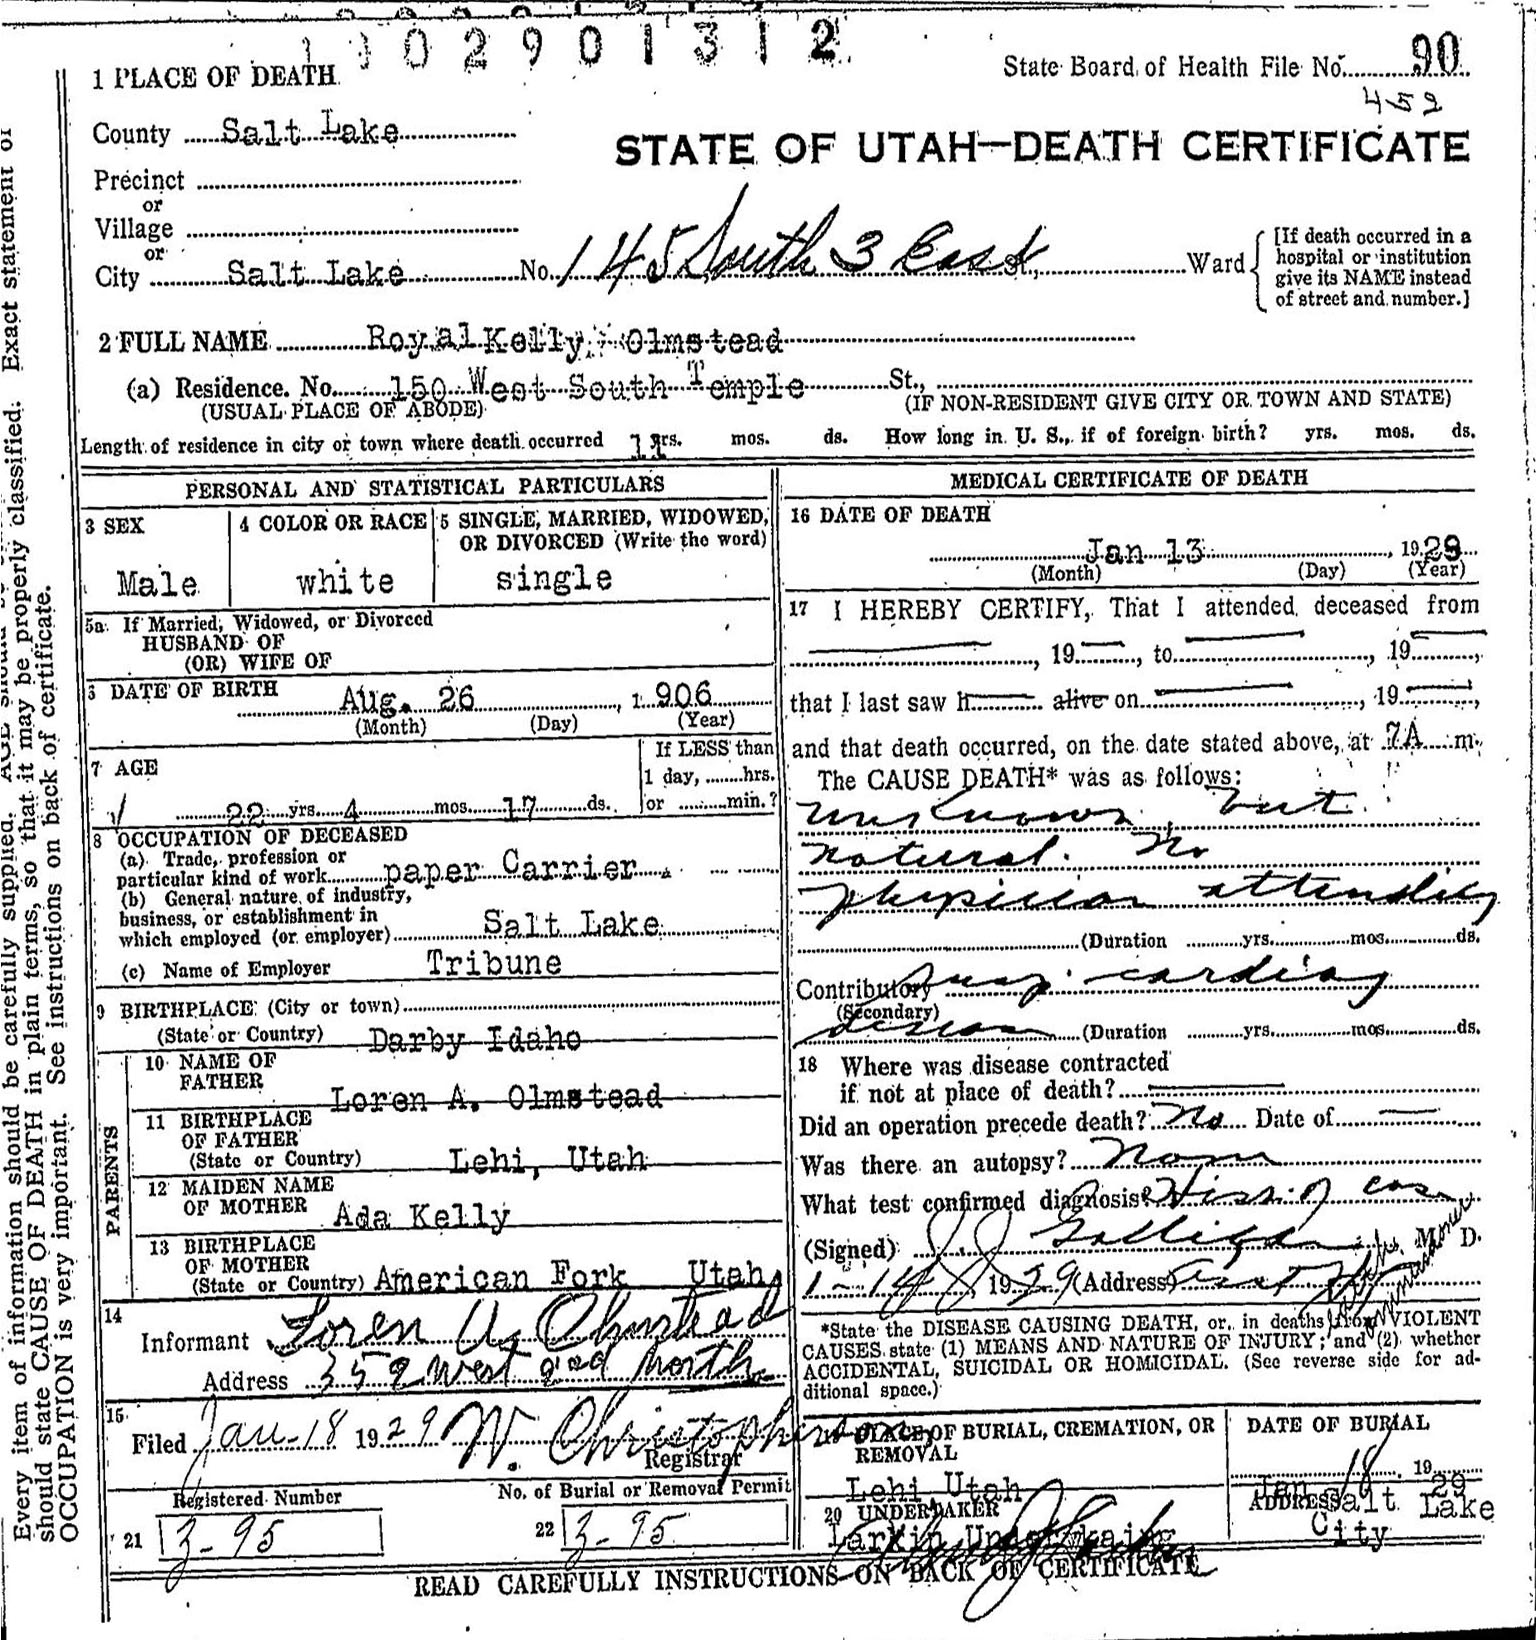 3 0 2 9 0 1 3 1 2
1 PLACE OF DEATH
State Board of Health File No. 90
452
County Salt Lake
STATE OF UTAH—DEATH CERTIFICATE
Precinct
or
Village
or
City Salt Lake No. 145 South 3 East St., Ward
[If death occurred in a
hospital or institution
give its NAME instead
of street and number.]
2 FULL NAME Royal Kelly Olmstead
(a) Residence. No. 150 West South Temple St.,
(USUAL PLACE OF ABODE) (IF NON-RESIDENT GIVE CITY OR TOWN AND STATE)
Length of residence in city or town where death occurred 11 yrs. mos. ds. How long in U. S., if of foreign birth? yrs. mos. ds.
PERSONAL AND STATISTICAL PARTICULARS
3 SEX
Male
4 COLOR OR RACE
white
5 SINGLE, MARRIED, WIDOWED,
OR DIVORCED (Write the word)
single
5a If Married, Widowed, or Divorced
HUSBAND OF
(OR) WIFE OF
6 DATE OF BIRTH Aug. 26, 1906
(Month) (Day) (Year)
7 AGE
22 yrs. 4 mos. 17 ds.
If LESS than
1 day, hrs.
or min.?
8 OCCUPATION OF DECEASED
(a) Trade, profession or
particular kind of work paper Carrier
(b) General nature of industry,
business, or establishment in
which employed (or employer) Salt Lake
(c) Name of Employer Tribune
9 BIRTHPLACE (City or town)
(State or Country) Darby Idaho
PARENTS
10 NAME OF
FATHER
Loren A. Olmstead
11 BIRTHPLACE
OF FATHER
(State or Country) Lehi, Utah
12 MAIDEN NAME
OF MOTHER Ada Kelly
13 BIRTHPLACE
OF MOTHER
(State or Country) American Fork Utah
14
Informant Loren A Olmstead
Address 352 West 2nd North
15
Filed Jan-18 1929 W. Christopherson
Registrar
Registered Number
21 3-95
No. of Burial or Removal Permit
22 3-95
MEDICAL CERTIFICATE OF DEATH
16 DATE OF DEATH
Jan 13, 1929
(Month) (Day) (Year)
17 I HEREBY CERTIFY, That I attended deceased from
, 19 , to , 19 ,
that I last saw h alive on , 19 ,
and that death occurred, on the date stated above, at 7A m.
The CAUSE DEATH* was as follows:
unknown, but
natural. No
physician attending
(Duration yrs. mos. ds.
Contributory cardiac
(Secondary)
disease (Duration yrs. mos. ds.
18 Where was disease contracted
if not at place of death?
Did an operation precede death? No Date of
Was there an autopsy? None
What test confirmed diagnosis? Hist. of case
(Signed) J. J. Galligan, M. D.
1-14 1929 (Address) Asst Commissioner
*State the DISEASE CAUSING DEATH, or, in deaths from VIOLENT
CAUSES state (1) MEANS AND NATURE OF INJURY; and (2) whether
ACCIDENTAL, SUICIDAL OR HOMICIDAL. (See reverse side for ad-
ditional space.)
19 PLACE OF BURIAL, CREMATION, OR
REMOVAL
Lehi Utah
DATE OF BURIAL
Jan 18, 1929
20 UNDERTAKER
Larkin Undertaking
ADDRESS Salt Lake
City
READ CAREFULLY INSTRUCTIONS ON BACK OF CERTIFICATE
Every item of information should be carefully supplied. AGE should be
should state CAUSE OF DEATH in plain terms, so that it may be properly classified. Exact statement of
OCCUPATION is very important. See instructions on back of certificate.